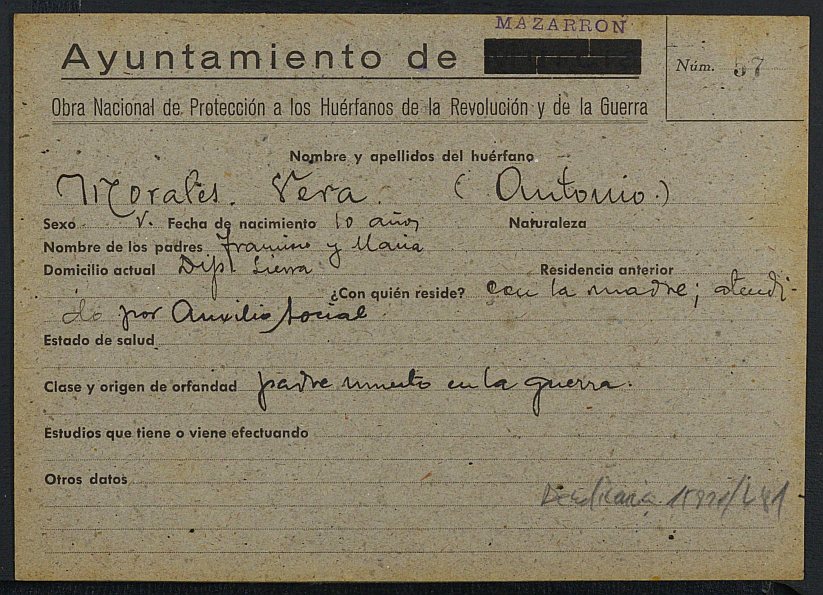 MAZARRON
Ayuntamiento de
Núm. 57
Obra Nacional de Protección a los Huérfanos de la Revolución y de la Guerra
Nombre y apellidos del huérfano
Morales. Vera. (Antonio.)
Sexo V. Fecha de nacimiento 10 años Naturaleza
Nombre de los padres Francisco y Maria
Domicilio actual Dip. Sierra Residencia anterior
¿Con quién reside? con la madre; atendi-
do por Auxilio Social
Estado de salud
Clase y origen de orfandad padre muerto en la guerra.
Estudios que tiene o viene efectuando
Otros datos